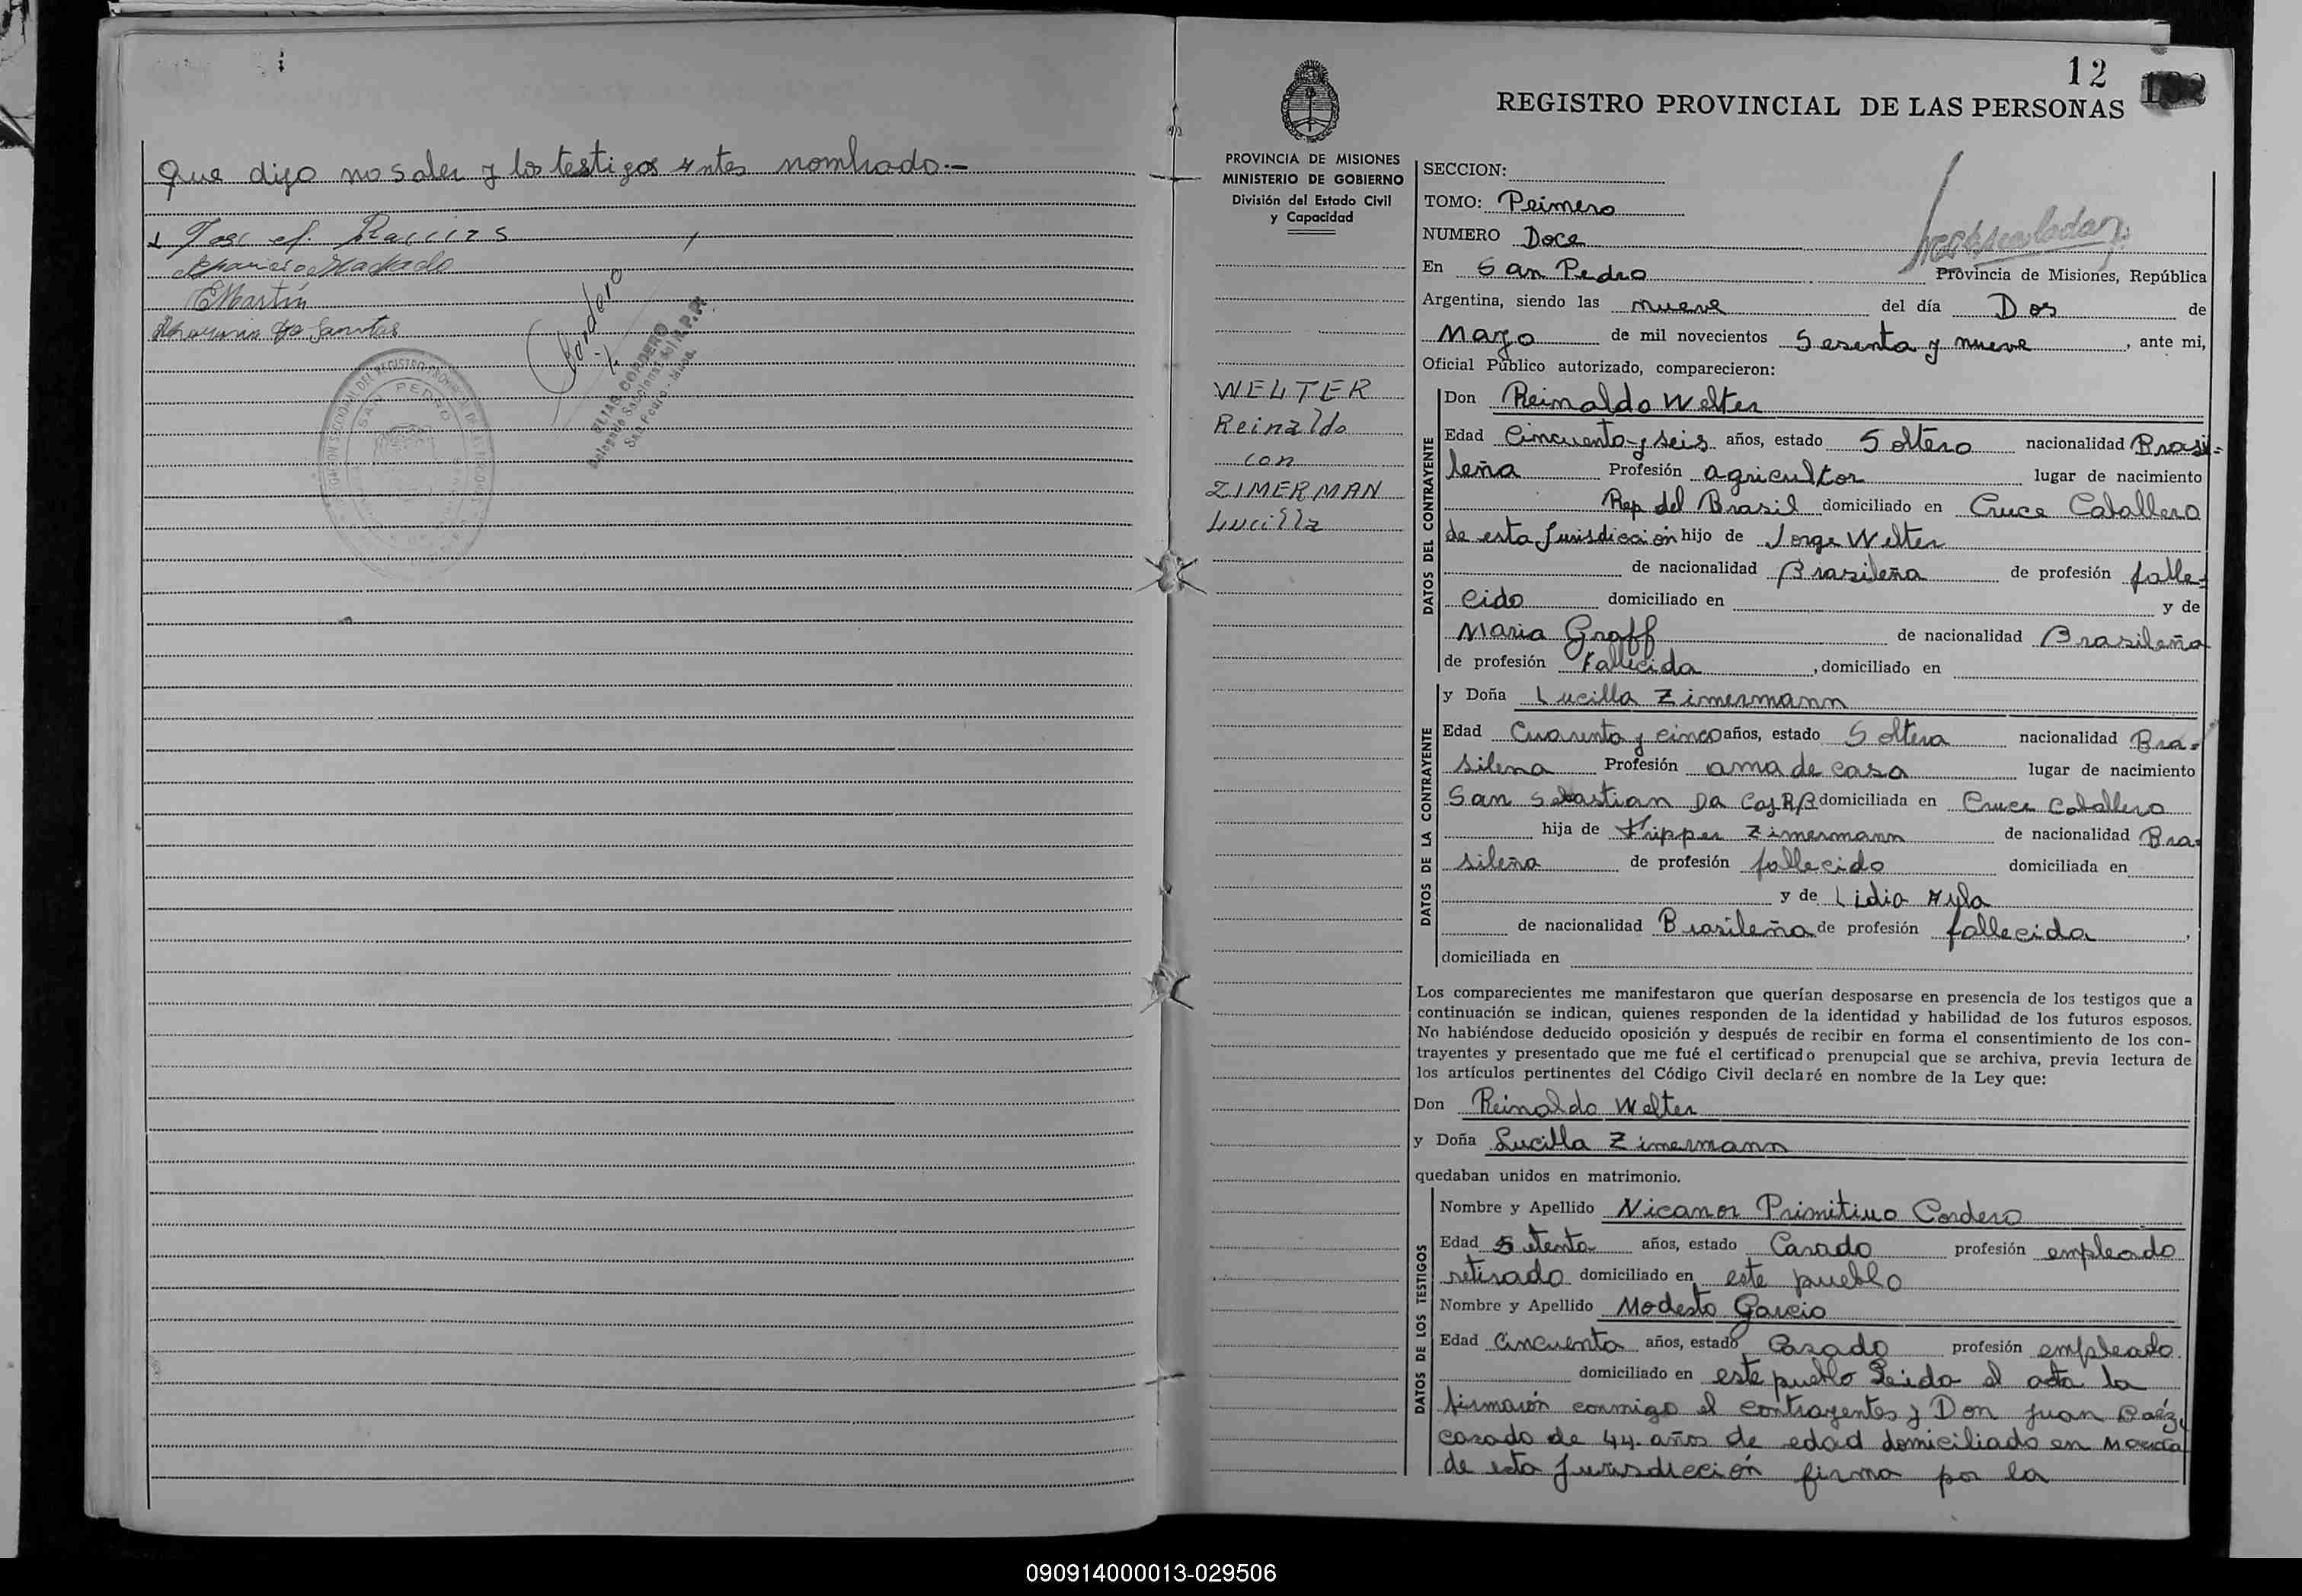 Que dijo no saber y los testigos antes nombrado.-
Aparicio Machado
EMartin
Cordero
ELIAS CORDERO
Delegado Seccional del R.P.P.
San Pedro - Mnes.
SAN PEDRO
12
REGISTRO PROVINCIAL DE LAS PERSONAS
PROVINCIA DE MISIONES
MINISTERIO DE GOBIERNO
División del Estado Civil
y Capacidad
WELTER
Reinaldo
con
ZIMERMAN
Lucilla
SECCION:
TOMO: Primero
NUMERO Doce
En San Pedro Provincia de Misiones, República
Argentina, siendo las nueve del día Dos de
Mayo de mil novecientos Sesenta y nueve, ante mi,
Oficial Público autorizado, comparecieron:
DATOS DEL CONTRAYENTE
Don Reinaldo Welter
Edad Cincuenta y seis años, estado Soltero nacionalidad Brasi=
leña Profesión agricultor lugar de nacimiento
Rep del Brasil domiciliado en Cruce Caballero
de esta Jurisdicción hijo de Jorge Welter
de nacionalidad Brasileña de profesión falle=
cido domiciliado en y de
Maria Graff de nacionalidad Brasileña
de profesión Fallecida, domiciliado en
DATOS DE LA CONTRAYENTE
y Doña Lucilla Zimermann
Edad Cuarenta y cinco años, estado Soltera nacionalidad Bra=
silena Profesión ama de casa lugar de nacimiento
San Sebastian Da domiciliada en Cruce Caballero
hija de Zimermann de nacionalidad Bra=
sileña de profesión fallecido domiciliada en
y de Lidia
de nacionalidad Brasileña de profesión fallecida,
domiciliada en
Los comparecientes me manifestaron que querían desposarse en presencia de los testigos que a
continuación se indican, quienes responden de la identidad y habilidad de los futuros esposos.
No habiéndose deducido oposición y después de recibir en forma el consentimiento de los con-
trayentes y presentado que me fué el certificado prenupcial que se archiva, previa lectura de
los artículos pertinentes del Código Civil declaré en nombre de la Ley que:
Don Reinaldo Welter
y Doña Lucilla Zimermann
quedaban unidos en matrimonio.
DATOS DE LOS TESTIGOS
Nombre y Apellido Nicanor Primitivo Cordero
Edad Setenta años, estado Casado profesión empleado
retirado domiciliado en este pueblo
Nombre y Apellido Modesto Garcia
Edad Cincuenta años, estado Casado profesión empleado
domiciliado en este pueblo Leida el acta la
firmarón conmigo el contrayentes y Don Juan Baéz,
casado de 44 años de edad domiciliado en
de esta Jurisdicción firma por la
090914000013-029506